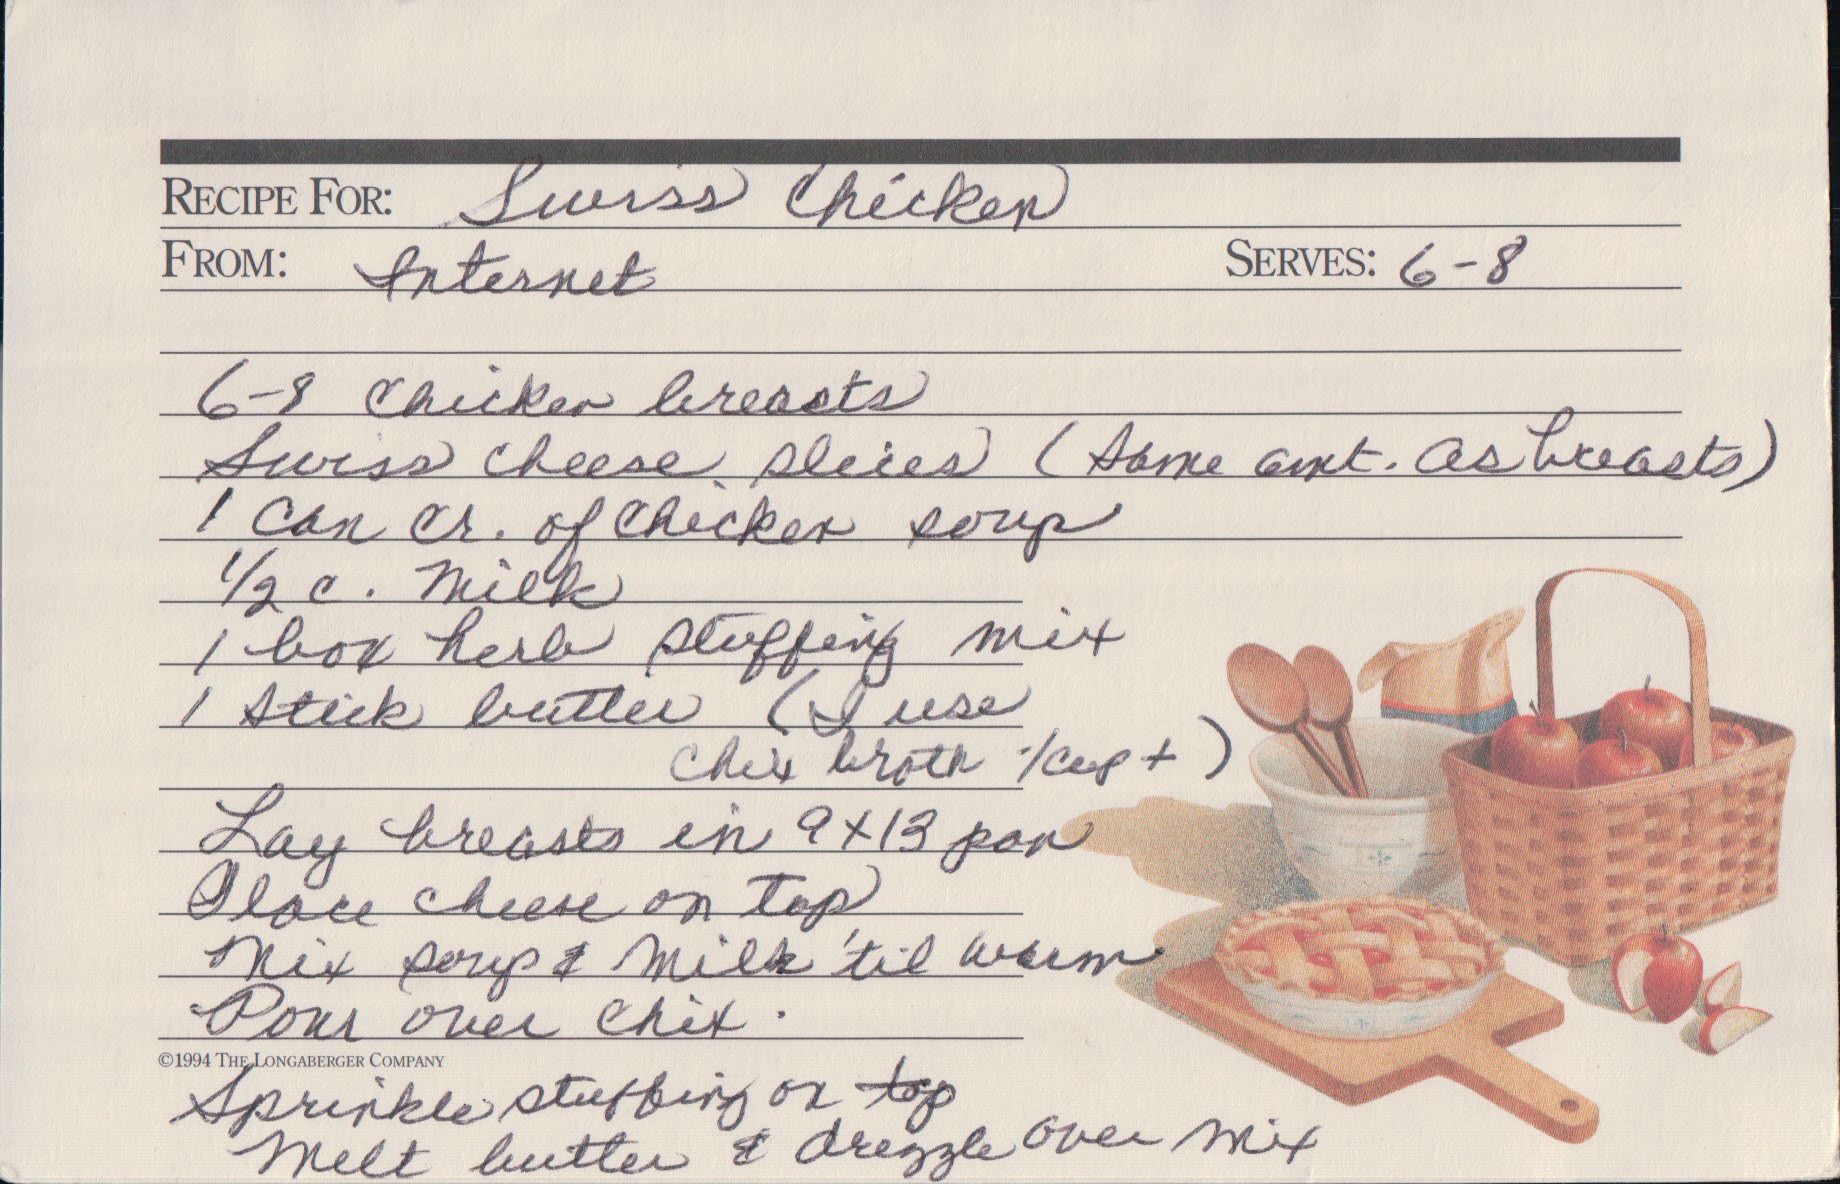 RECIPE FOR: Swiss Chicken
FROM: Internet SERVES: 6-8
6-8 Chicken breasts
Swiss cheese slices (same amt. as breasts)
1 Can Cr. of Chicken soup
1/2 c. Milk
1 box herb stuffing mix
1 stick butter (I use
chix broth 1/cup +)
Lay breasts in 9x13 pan
Place cheese on top
Mix soup & Milk 'til warm
Pour over chix.
©1994 THE LONGABERGER COMPANY
Sprinkle stuffing on top
Melt butter & drezzle over mix